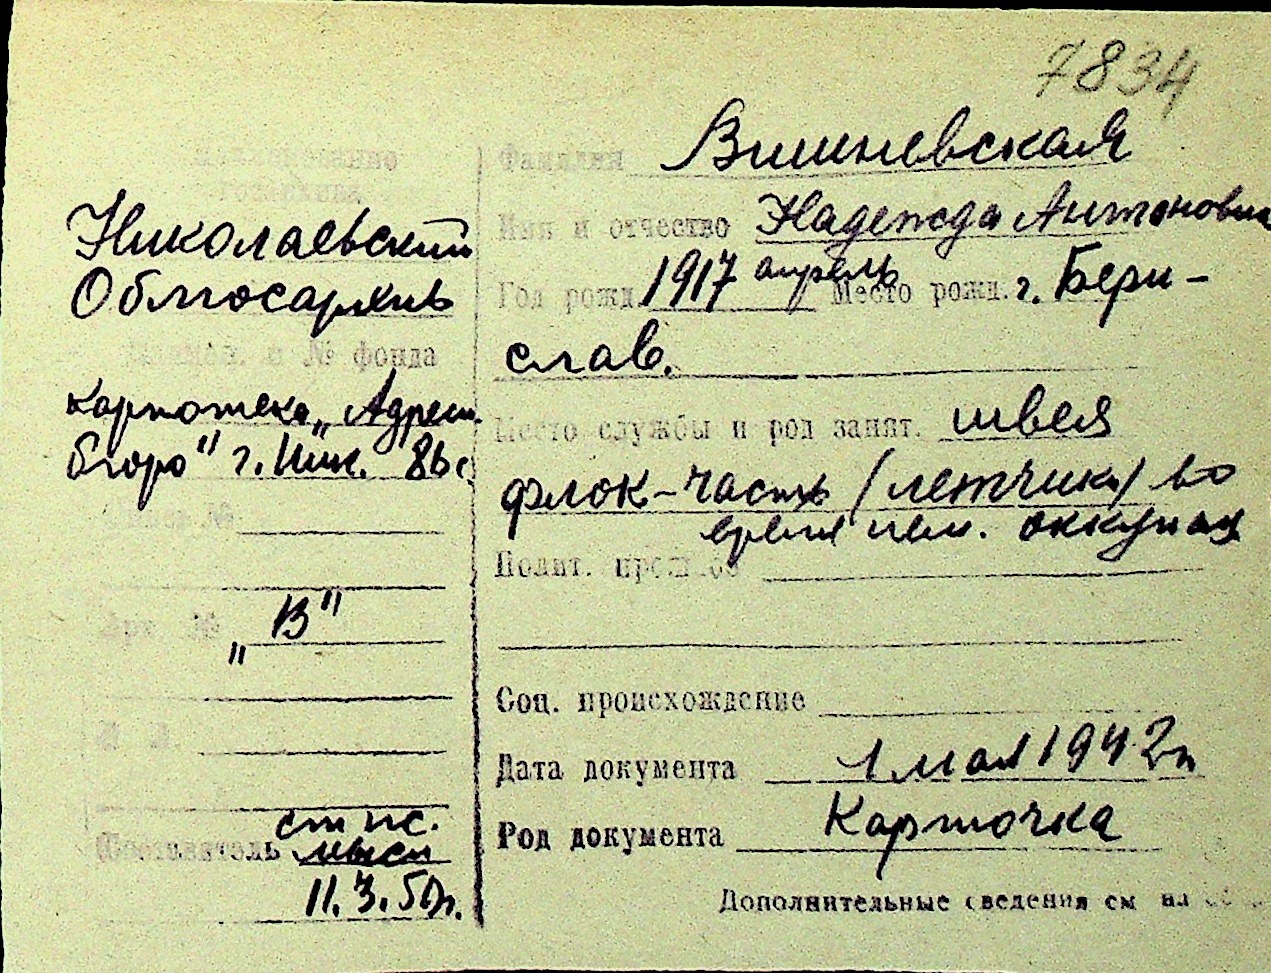 7834
Наименование
госархива
Николаевский
Облгосархив
Назв. и № фонда
картотека „Адресн.
бюро" г. Ник.
Опись №
Арх. №
„В"
Л. Л.
Составитель
11.3.50г.
Фамилия Вишневская
Имя и отчество Надежда Антоновна
Год рожд. 1917 апрель Место рожд. г. Бери-
слав.
Место службы и род занят. швея
флок-часть (летчики) во
время нем. оккупац
Полит. прошлое
Соц. происхождение
Дата документа 1 мая 1942г
Род документа Карточка
Дополнительные сведения см на об